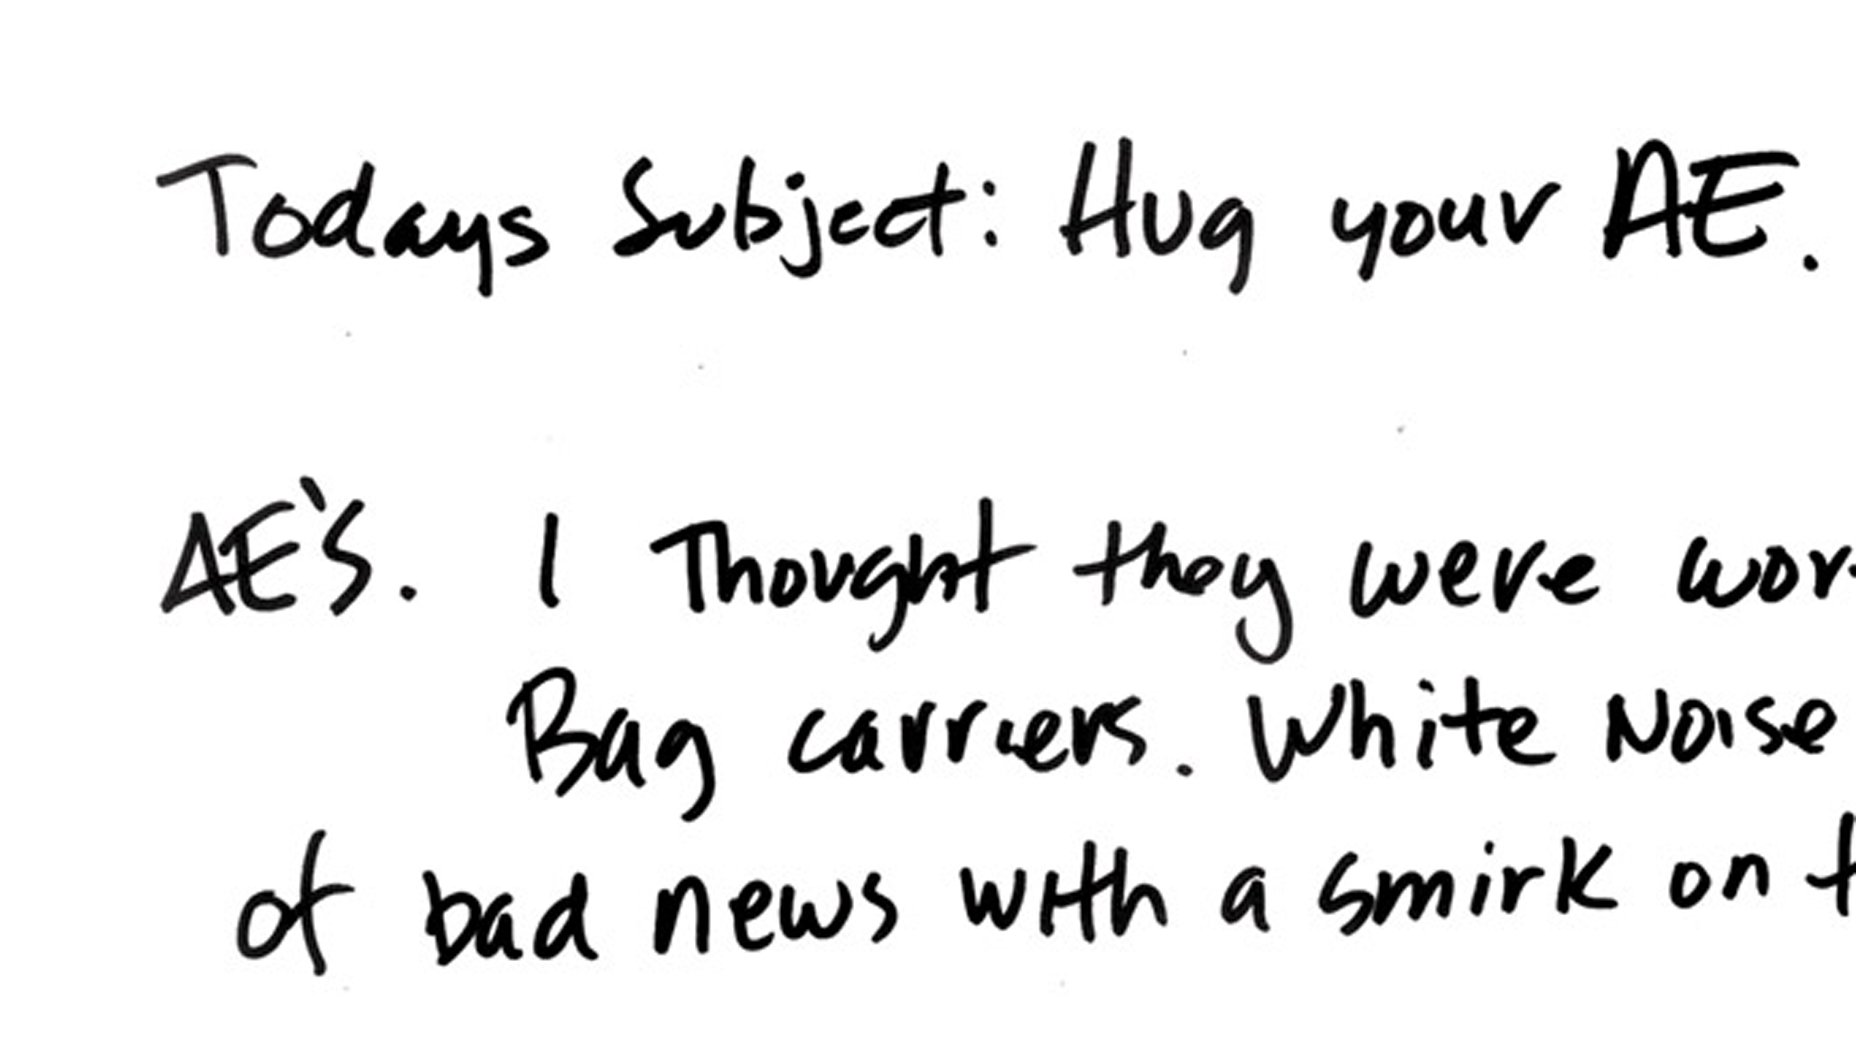 Todays Subject: Hug your AE.
AE's. I Thought they were
Bag carriers. White Noise
of bad news with a smirk on